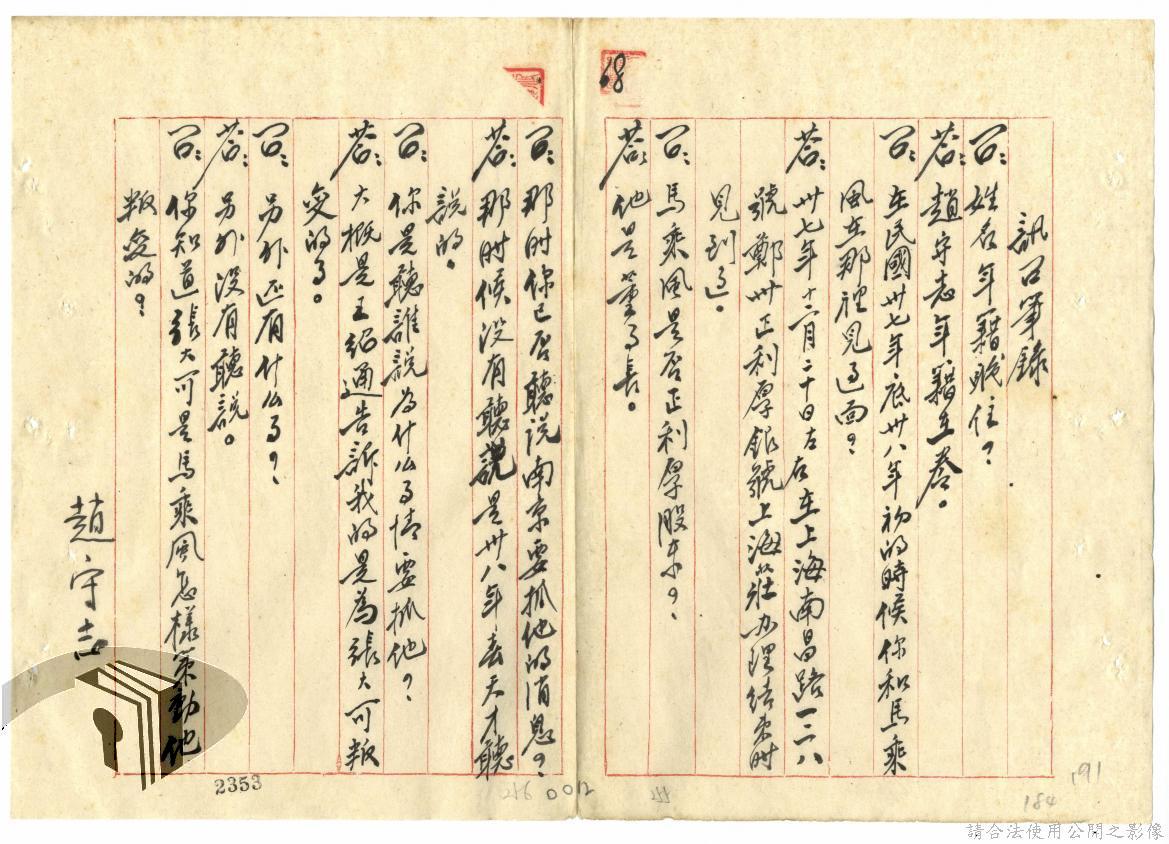 訊問筆錄
問：姓名年籍職住？
答：趙守志年籍在卷。
問：在民國卅七年底卅八年初的時候你和馬乘
風在那裡見過面？
答：卅七年十二月二十日左右在上海南昌路一二八
號鄭州正利厚銀號上海分莊办理結束時
見到過。
問：馬乘風是否正利厚股東？
答：他是董事長。
問：那时你已否聽说南京要抓他的消息？
答：那时候没有聽說是卅八年春天才聽
說的。
問：你是聽誰說為什么事情要抓他？
答：大概是王紹通告訴我的是為張大可叛
变的事。
問：另外还有什么事？
答：另外没有聽說。
問：你知道張大可是馬乘風怎樣策動他
叛变的？
趙守志
68
2353
0012
184
191
請合法使用公開之影像